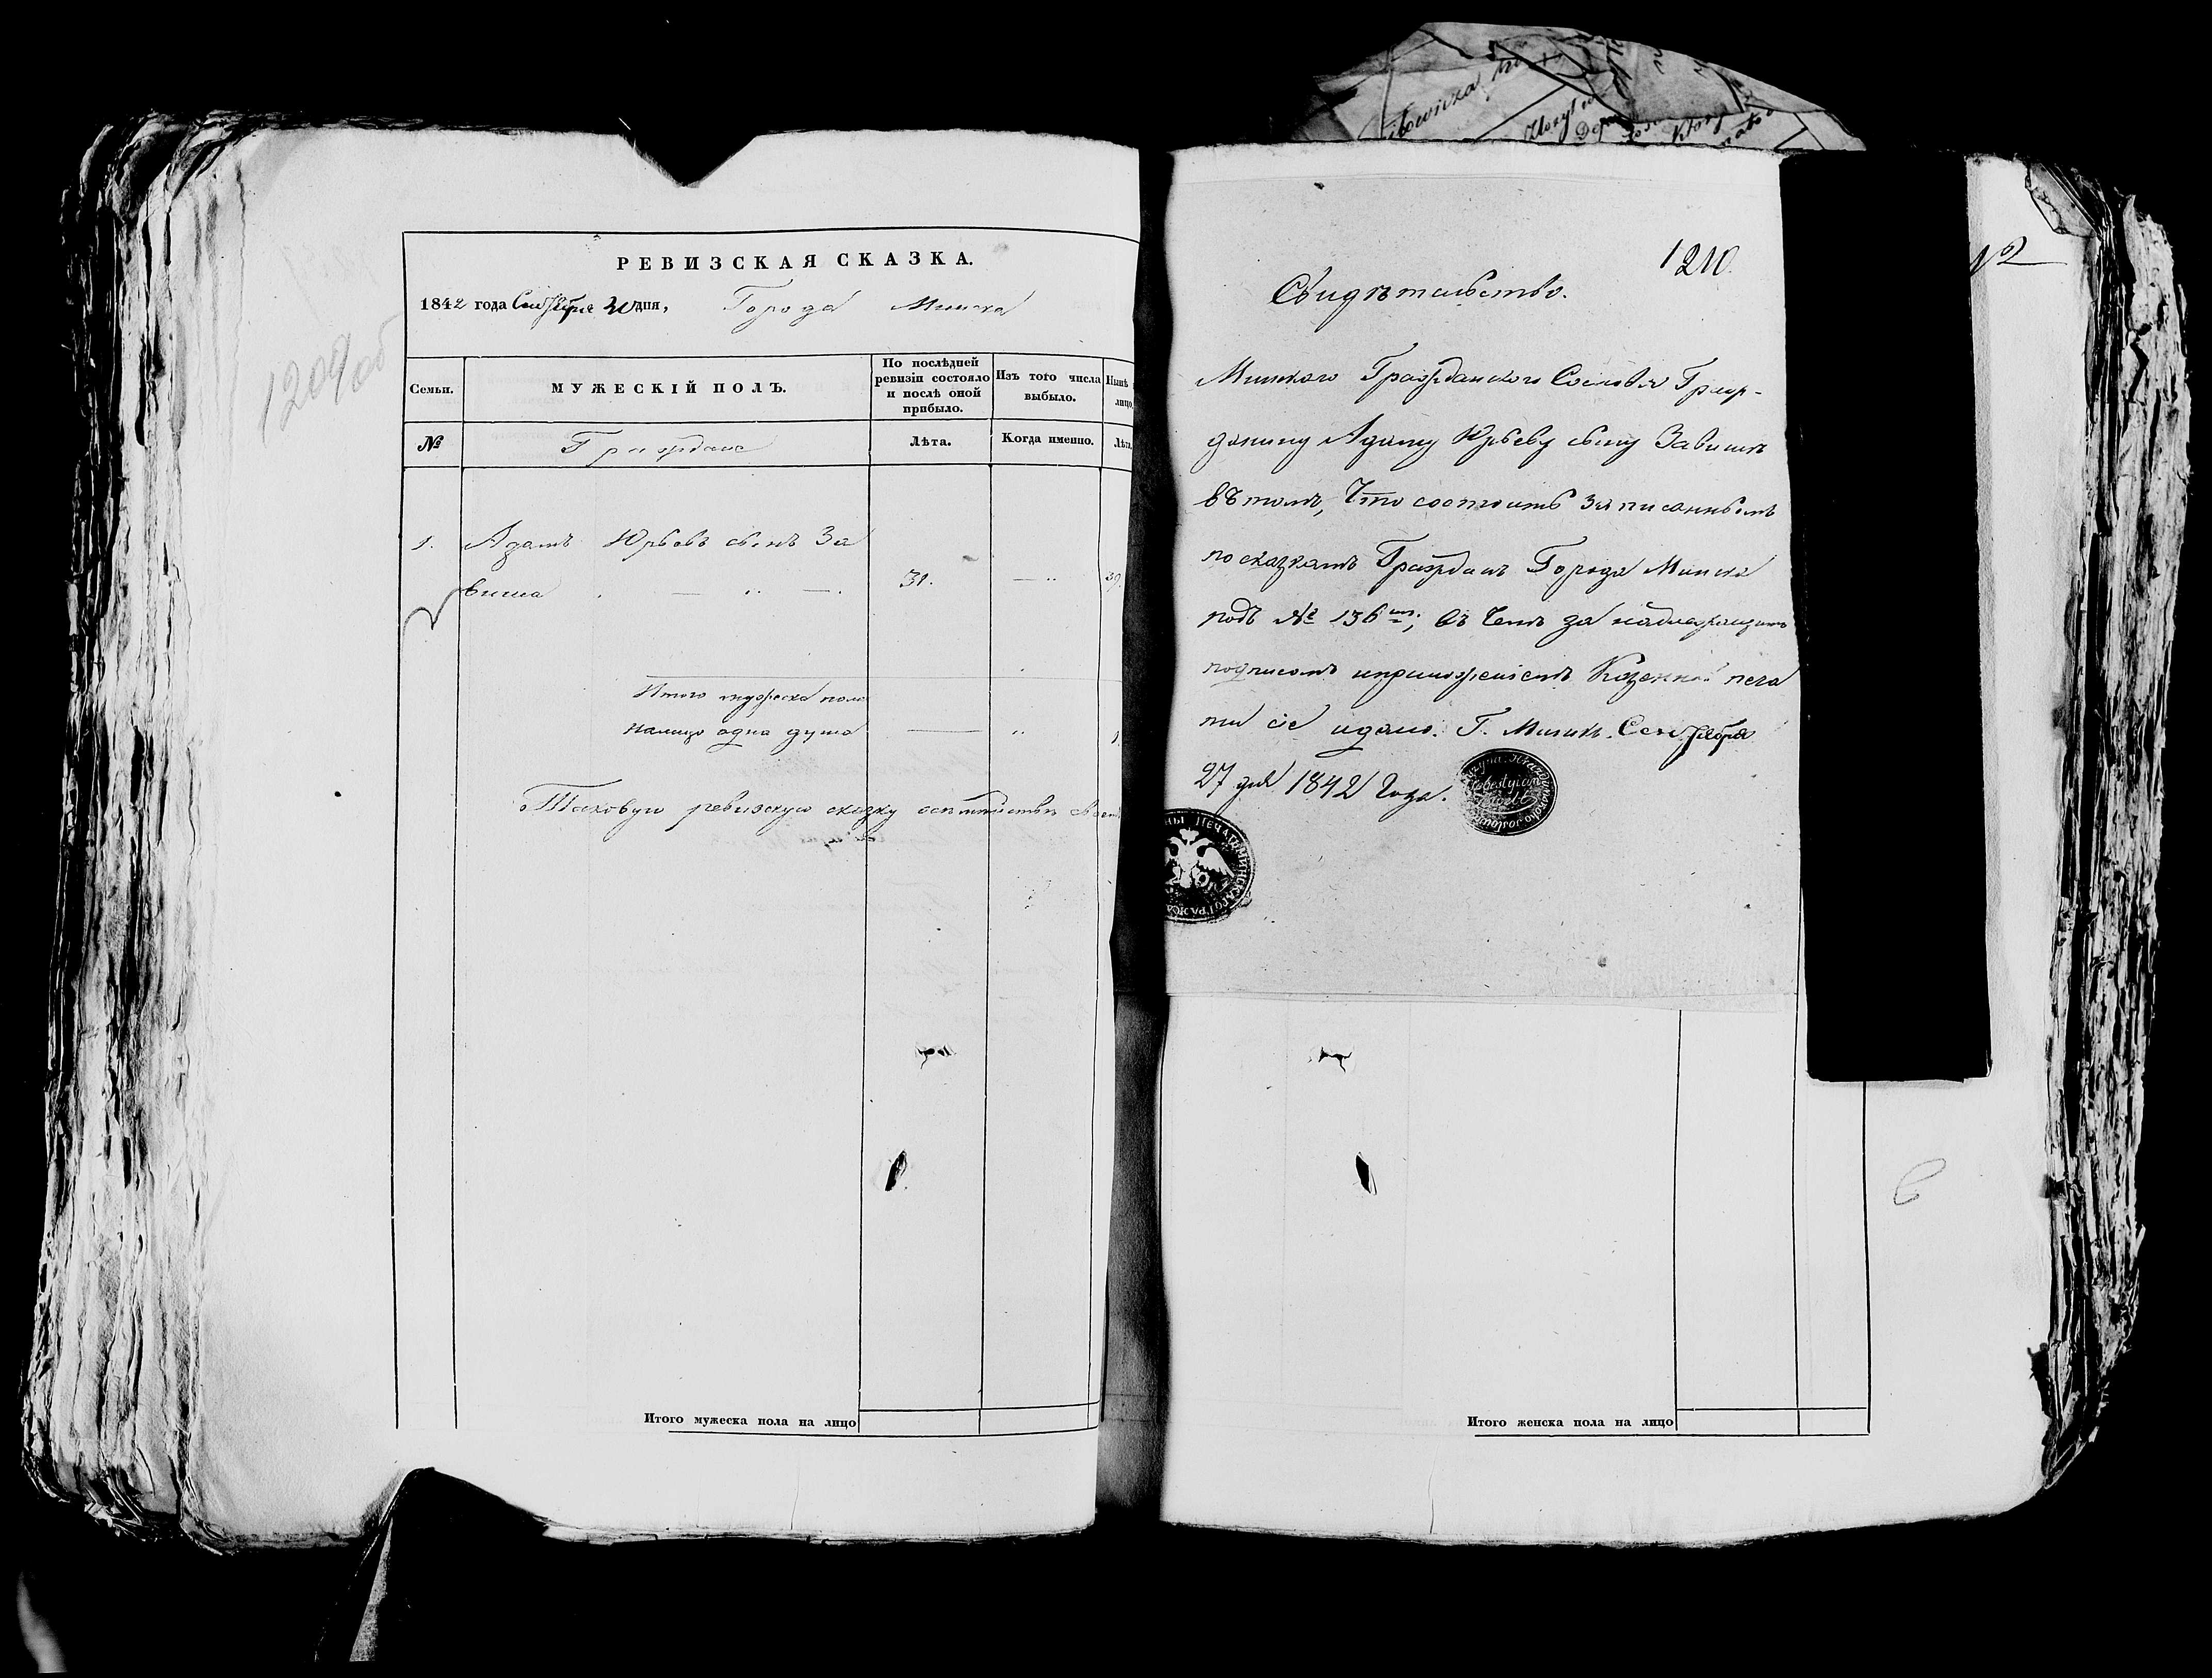 1209 об
РЕВИЗСКАЯ СКАЗКА.
1842 года Сентября 20 дня, Города Минска
Семьи.
МУЖЕСКІЙ ПОЛЪ.
По послѣдней ревизіи состояло и послѣ оной прибыло.
Изъ того числа выбыло.
Нынѣ
лицо
№
Граждане
Лѣта.
Когда именно.
Лѣта
1. Адамъ Юрьевъ сынъ За
виша 31. 39.
Итого мужеска пола
налицо одна душа 1.
Таковую ревизскую сказку
Итого мужеска пола на лицо
1210.
Свидѣтельство.
Минскаго Гражданскаго Сословія Граж-
данину Адаму Юрьеву сыну Завишѣ
въ томъ, Что состоитъ записаннымъ
по сказкамъ Гражданъ Города Минска
подъ № 136 мъ; въ чемъ за надлежащимъ
подписомъ и приложеніемъ Казенной печа
ти сіе и дано. Г. Минск. Сентября
27 дня 1842 Года.
НЫ ПЕЧАТЬ МИНСКАГО ГРАЖДА
Итого женска пола на лицо